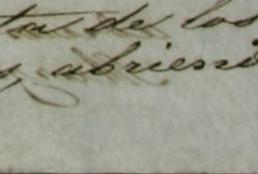 ta de los
y abriessi